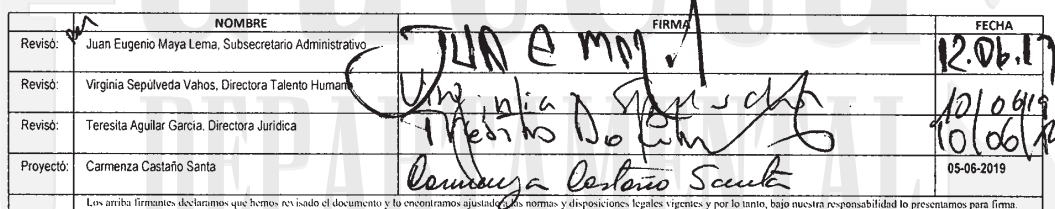 NOMBRE FIRMA FECHA
Revisó: Juan Eugenio Maya Lema, Subsecretario Administrativo 12.06.19
Revisó: Virginia Sepúlveda Vahos, Directora Talento Humano Virginia Sepulveda 10/06/19
Revisó: Teresita Aguilar Garcia. Directora Jurídica 10/06/19
Proyectó: Carmenza Castaño Santa Carmenza Castaño Santa 05-06-2019
Los arriba firmantes declaramos que hemos revisado el documento y lo encontramos ajustado a las normas y disposiciones legales vigentes y por lo tanto, bajo nuestra responsabilidad lo presentamos para firma.
DEPARTAMENTAL